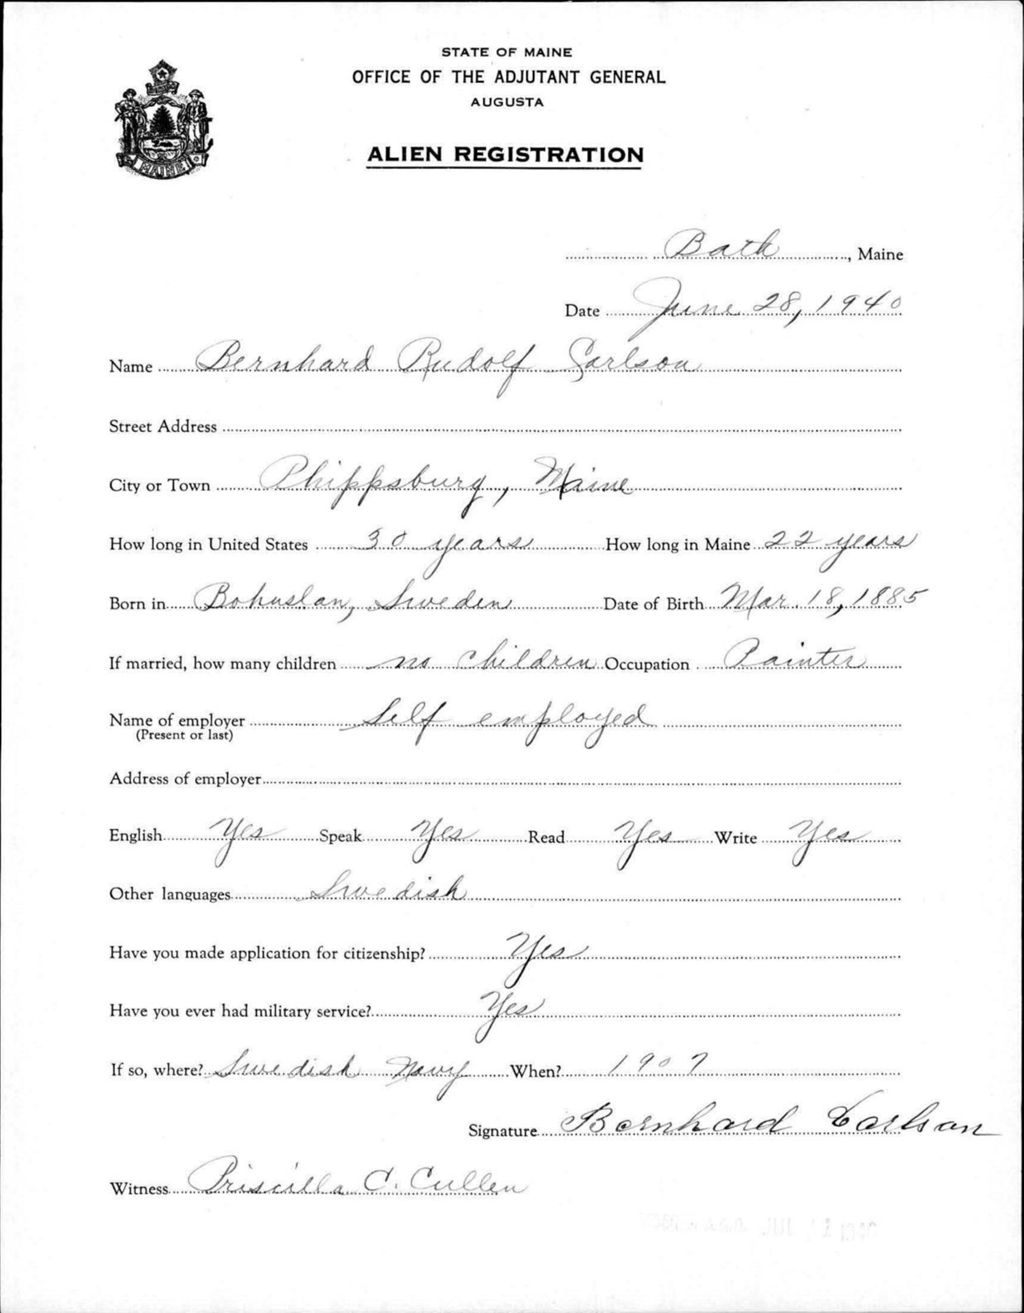 STATE OF MAINE
OFFICE OF THE ADJUTANT GENERAL
AUGUSTA
ALIEN REGISTRATION
MAINE
Bath, Maine
Date June 28, 1940
Name Bernhard Rudolf Carlson
Street Address
City or Town Phippsburg, Maine
How long in United States 30 years How long in Maine 22 years
Born in Bohuslan, Sweden Date of Birth Mar. 18, 1885
If married, how many children no children Occupation Painter
Name of employer Self employed
(Present or last)
Address of employer
English Yes Speak Yes Read Yes Write Yes
Other languages Swedish
Have you made application for citizenship? Yes
Have you ever had military service? Yes
If so, where? Swedish Navy When? 1907
Signature Bernhard Carlson
Witness Priscilla C. Cullen